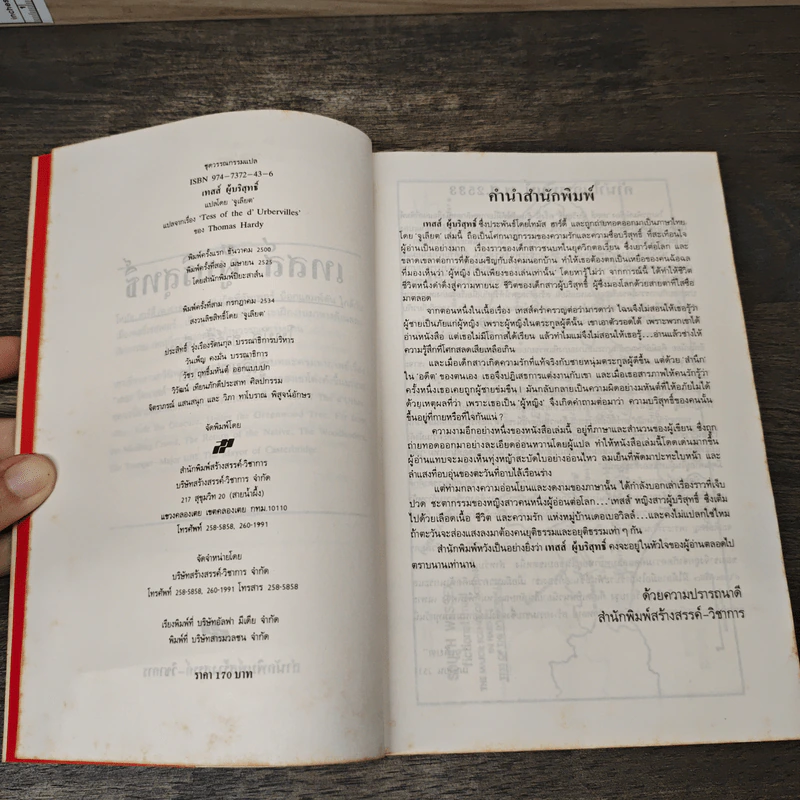 ชุดวรรณกรรมแปล
ISBN 974-7372-43-6
เทสส์ ผู้บริสุทธิ์
แปลโดย 'จูเลียต'
แปลจากเรื่อง 'Tess of the d' Urbervilles'
ของ Thomas Hardy
พิมพ์ครั้งแรก ธันวาคม 2500
พิมพ์ครั้งที่สอง เมษายน 2525
โดยสำนักพิมพ์ปิยะสาส์น
พิมพ์ครั้งที่สาม กรกฎาคม 2534
สงวนลิขสิทธิ์โดย 'จูเลียต'
ประสิทธิ์ รุ่งเรืองรัตนกุล บรรณาธิการบริหาร
วันเพ็ญ คงมั่น บรรณาธิการ
วัชร ฤทธิ์มหันต์ ออกแบบปก
วิวัฒน์ เทียนภักดีประสาท ศิลปกรรม
จิตราภรณ์ แสนสนุก และ วิภา ทาโบราณ พิสูจน์อักษร
จัดพิมพ์โดย
สำนักพิมพ์สร้างสรรค์-วิชาการ
บริษัทสร้างสรรค์-วิชาการ จำกัด
217 สุขุมวิท 20 (สายน้ำผึ้ง)
แขวงคลองเตย เขตคลองเตย กทม.10110
โทรศัพท์ 258-5858, 260-1991
จัดจำหน่ายโดย
บริษัทสร้างสรรค์-วิชาการ จำกัด
โทรศัพท์ 258-5858, 260-1991 โทรสาร 258-5858
เรียงพิมพ์ที่ บริษัทอัลฟา มีเดีย จำกัด
พิมพ์ที่ บริษัทสารมวลชน จำกัด
ราคา 170 บาท
คำนำสำนักพิมพ์
เทสส์ ผู้บริสุทธิ์ ซึ่งประพันธ์โดยโทมัส ฮาร์ดี้ และถูกถ่ายทอดออกมาเป็นภาษาไทย
โดย 'จูเลียต' เล่มนี้ ถือเป็นโศกนาฏกรรมของความรักและความซื่อบริสุทธิ์ ที่สะเทือนใจ
ผู้อ่านเป็นอย่างมาก เรื่องราวของเด็กสาวชนบทในยุควิกตอเรียน ซึ่งเยาว์ต่อโลก และ
ขลาดเขลาต่อการที่ต้องเผชิญกับสังคมนอกบ้าน ทำให้เธอต้องตกเป็นเหยื่อของคนฉ้อฉล
ที่มองเห็นว่า 'ผู้หญิง เป็นเพียงของเล่นเท่านั้น' โดยหารู้ไม่ว่า จากการณ์นี้ ได้ทำให้ชีวิต
ชีวิตหนึ่งดำดิ่งสู่ความหายนะ ชีวิตของเด็กสาวผู้บริสุทธิ์ ผู้ซึ่งมองโลกด้วยสายตาที่ใสซื่อ
มาตลอด
จากตอนหนึ่งในเนื้อเรื่อง เทสส์คร่ำครวญต่อว่ามารดาว่า ไฉนจึงไม่สอนให้เธอรู้ว่า
ผู้ชายเป็นภัยแก่ผู้หญิง เพราะผู้หญิงในตระกูลผู้ดีนั้น เขาเอาตัวรอดได้ เพราะพวกเขาได้
อ่านหนังสือ แต่เธอไม่มีโอกาสได้เรียน แล้วทำไมแม่จึงไม่สอนให้เธอรู้...อ่านแล้วช่างให้
ความรู้สึกที่โศกสลดเสียเหลือเกิน
และเมื่อเด็กสาวเกิดความรักที่แท้จริงกับชายหนุ่มตระกูลผู้ดีขึ้น แต่ด้วย 'สำนึก'
ใน 'อดีต' ของตนเอง เธอจึงปฏิเสธการแต่งงานกับเขา และเมื่อเธอสารภาพให้คนรักรู้ว่า
ครั้งหนึ่งเธอเคยถูกผู้ชายข่มขืน! มันกลับกลายเป็นความผิดอย่างมหันต์ที่ให้อภัยไม่ได้
ด้วยเหตุผลที่ว่า เพราะเธอเป็น 'ผู้หญิง' จึงเกิดคำถามต่อมาว่า ความบริสุทธิ์ของคนนั้น
ขึ้นอยู่ที่กายหรือที่ใจกันแน่?
ความงามอีกอย่างหนึ่งของหนังสือเล่มนี้ อยู่ที่ภาษาและสำนวนของผู้เขียน ซึ่งถูก
ถ่ายทอดออกมาอย่างละเอียดอ่อนหวานโดยผู้แปล ทำให้หนังสือเล่มนี้โดดเด่นมากขึ้น
ผู้อ่านแทบจะมองเห็นทุ่งหญ้าสะบัดใบอย่างอ่อนไหว ลมเย็นที่พัดมาปะทะใบหน้า และ
ลำแสงที่อบอุ่นของตะวันที่อาบไล้เรือนร่าง
แต่ท่ามกลางความอ่อนโยนและงดงามของภาษานั้น ได้กำลังบอกเล่าเรื่องราวที่เจ็บ
ปวด ชะตากรรมของหญิงสาวคนหนึ่งผู้อ่อนต่อโลก...'เทสส์' หญิงสาวผู้บริสุทธิ์ ซึ่งเต็ม
ไปด้วยเลือดเนื้อ ชีวิต และความรัก แห่งหมู่บ้านเดอเบอวิลล์...และคงไม่แปลกใช่ไหม
ถ้าตะวันจะส่องแสงลงมาต้องคนยุติธรรมและอยุติธรรมเท่า ๆ กัน
สำนักพิมพ์หวังเป็นอย่างยิ่งว่า เทสส์ ผู้บริสุทธิ์ คงจะอยู่ในหัวใจของผู้อ่านตลอดไป
ตราบนานเท่านาน
ด้วยความปรารถนาดี
สำนักพิมพ์สร้างสรรค์-วิชาการ